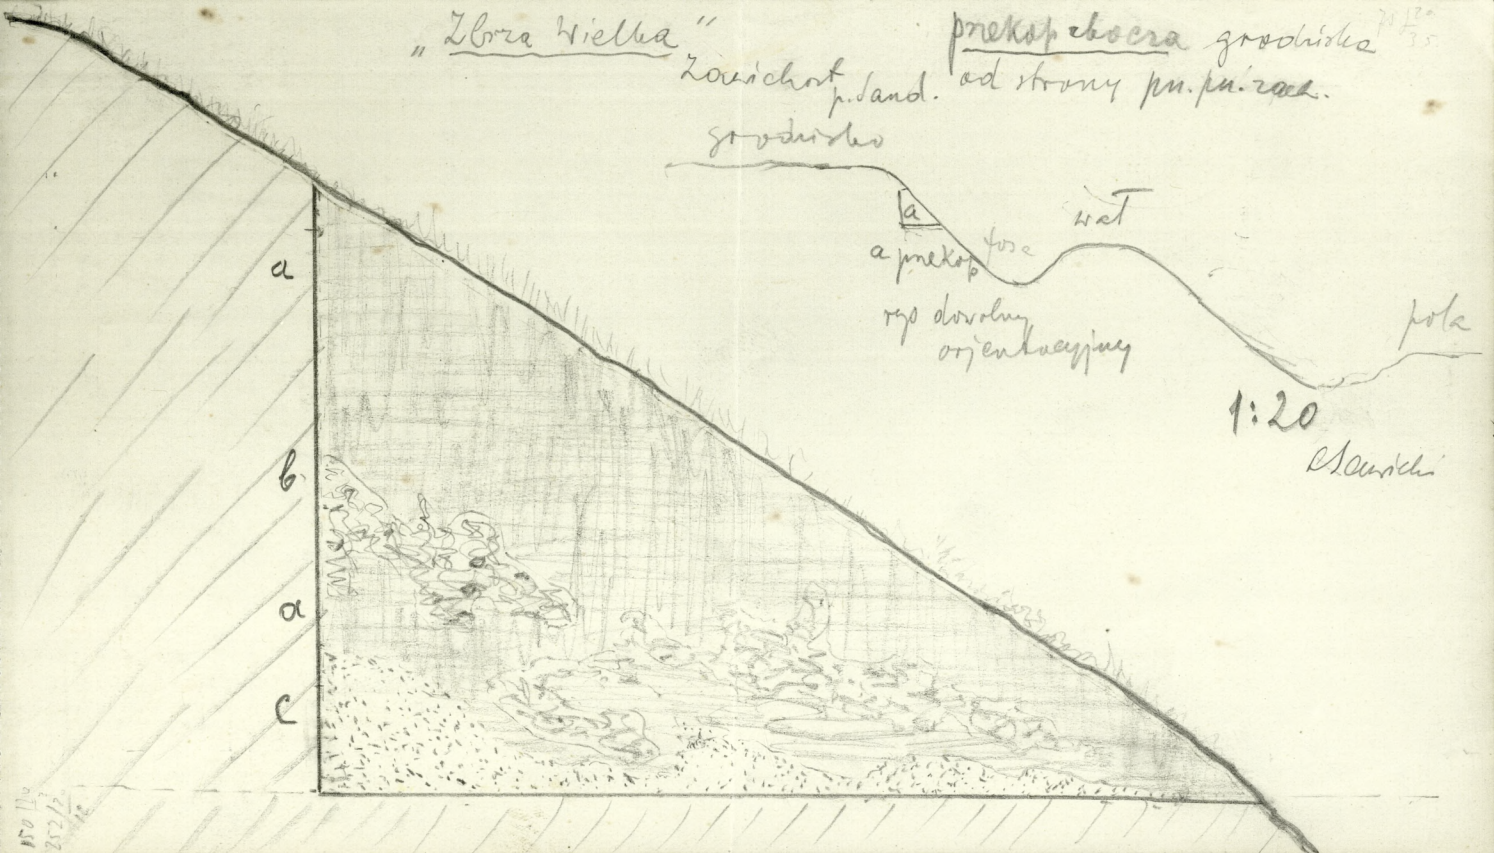 „Zbrza Wielka”
Zawichost
p. Sand.
przekop zbocza grodziska
od strony pn. pn. zach.
grodzisko
a
a przekop
fosa
wał
rys dowolny
orjentacyjny
pole
1:20
LSawicki
a
b
a
c